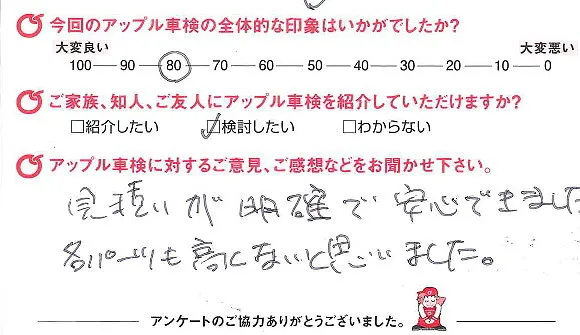 今回のアップル車検の全体的な印象はいかがでしたか?
大変良い 大変悪い
100 90 80 70 60 50 40 30 20 10 0
ご家族、知人、ご友人にアップル車検を紹介していただけますか?
□紹介したい ☑検討したい □わからない
アップル車検に対するご意見、ご感想などをお聞かせ下さい。
見積りが明確で安心できました
各パーツも高くないと思いました。
アンケートのご協力ありがとうございました。